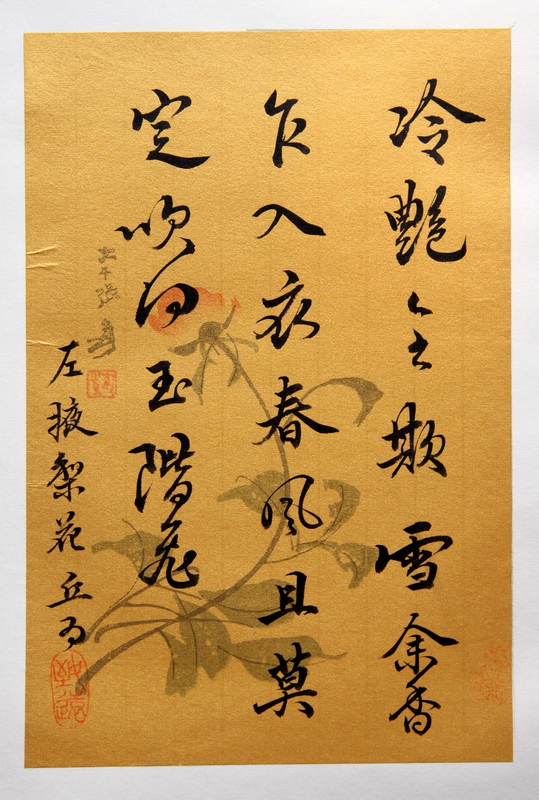 冷艳全欺雪余香
乍入衣春风且莫
定吹向玉階飛
左掖梨花丘为